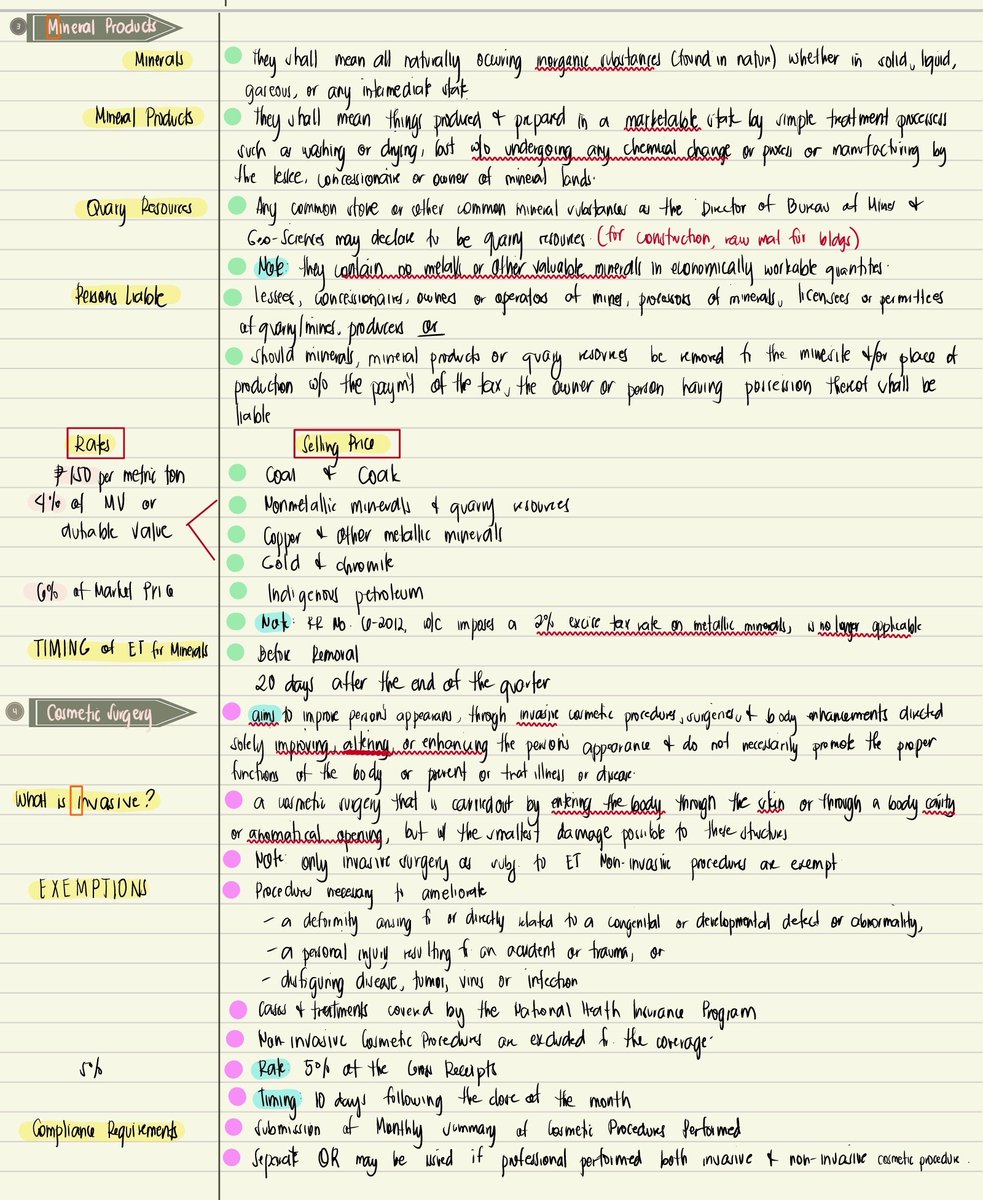 3 Mineral Products
Minerals
They shall mean all naturally occuring inorganic substances (found in natur) whether in solid, liquid,
gaseous, or any intermediate state
Mineral Products
they shall mean things produced & prepared in a marketable state by simple treatment processes
such as washing or drying, but w/o undergoing any chemical change or process or manufacturing by
the lessee, concessionaire or owner of mineral lands.
Quarry Resources
Any common stone or other common mineral substances as the Director of Bureau of Mines &
Geo-Sciences may declare to be quarry resources (for construction, raw mat for bldgs)
Note: they contain no metals or other valuable minerals in economically workable quantities.
Persons Liable
lessees, concessionaires, owners or operators of mines, processors of minerals, licensees or permittees
of quarry/mines, producers or
should minerals, mineral products or quarry resources be removed fr the minesite &/or place of
production w/o the paym't of the tax, the owner or person having possession thereof shall be
liable
Rates
Selling Price
₱150 per metric ton
Coal & Coak
4% of MV or
dutiable value
Nonmetallic minerals & quarry resources
Copper & other metallic minerals
Gold & chromite
6% of Market Price
Indigenous petroleum
Note: RR No. 6-2012, w/c imposes a 2% excise tax rate on metallic minerals, is no longer applicable
TIMING of ET for Minerals
Before Removal
20 days after the end of the quarter
4 Cosmetic Surgery
aims to improve person's appearance, through invasive cosmetic procedures, surgeries, & body enhancements directed
solely improving, altering, or enhancing the person's appearance & do not necessarily promote the proper
functions of the body or prevent or treat illness or disease.
What is Invasive?
a cosmetic surgery that is carried out by entering the body through the skin or through a body cavity
or anomatical opening, but w/ the smallest damage possible to these structures
Note: only invasive surgery as subj. to ET Non-invasive procedures are exempt
EXEMPTIONS
Procedures necessary to ameliorate
- a deformity arising fr or directly related to a congenital or developmental defect or abnormality,
- a personal injury resulting fr an accident or trauma, or
- disfiguring disease, tumor, virus or infection
Cases & treatments covered by the National Health Insurance Program
Non-invasive Cosmetic Procedures are excluded fr. the coverage.
5%
Rate: 50% of the Gross Receipts
Timing: 10 days following the close of the month
Compliance Requirements
Submission of Monthly summary of Cosmetic Procedures Performed
Separate OR may be issued if professional performed both invasive & non-invasive cosmetic procedure.